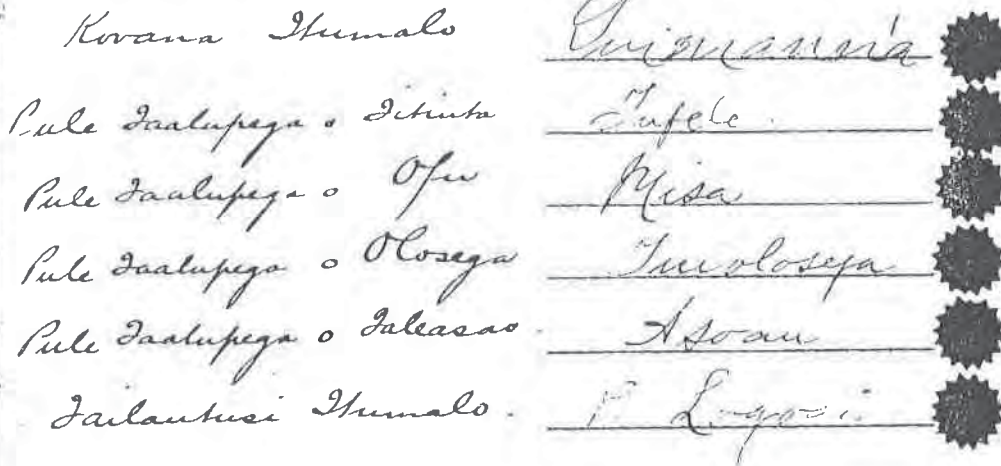 Kovana Itumalo Tuimanu'a
Pule Faalupega o Fitiuta Tufele.
Pule Faalupega o Ofu Misa
Pule Faalupega o Olosega Tuiolosega
Pule Faalupega o Faleasao. Asoau
Failautusi Itumalo.